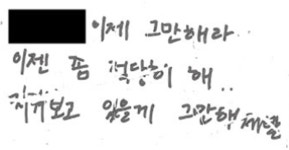 이제 그만해라
이젠 좀 적당히 해..
지켜보고 있을게 그만해